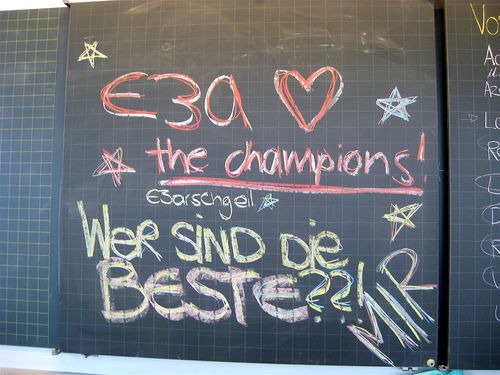 E3a
the champions!
E3arschgeil
WER SIND Die
BESTE??!
MR
Vo